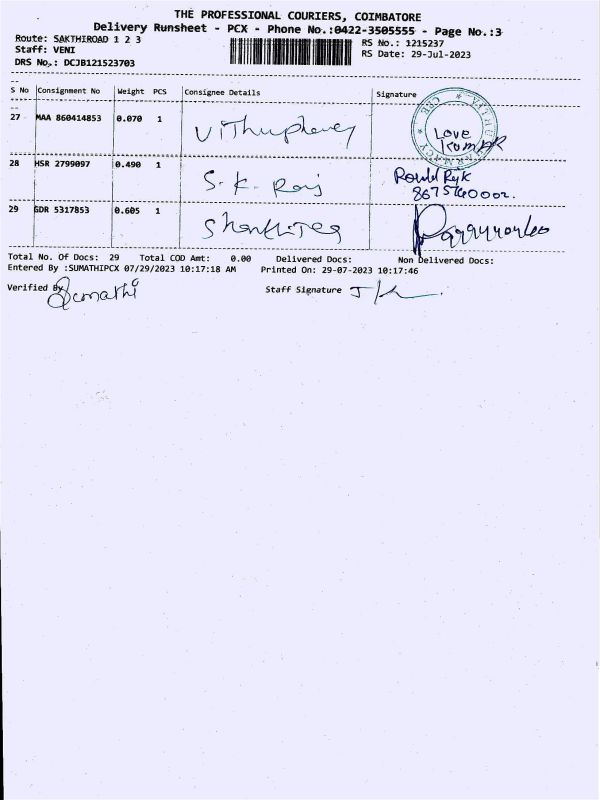 THE PROFESSIONAL COURIERS, COIMBATORE
Delivery Runsheet - PCX - Phone No.:0422-3505555 - Page No.:3
Route: SAKTHIROAD 1 2 3
RS No.: 1215237
Staff: VENI
RS Date: 29-Jul-2023
DRS No.: DCJB121523703
S No Consignment No Weight PCS Consignee Details Signature
27 MAA 860414853 0.070 1 Love Kumar
28 HSR 2799097 0.490 1 S.K. Raj
29 GDR 5317853 0.605 1
Total No. Of Docs: 29 Total COD Amt: 0.00 Delivered Docs: Non Delivered Docs:
Entered By :SUMATHIPCX 07/29/2023 10:17:18 AM Printed On: 29-07-2023 10:17:46
Verified By Sumathi Staff Signature